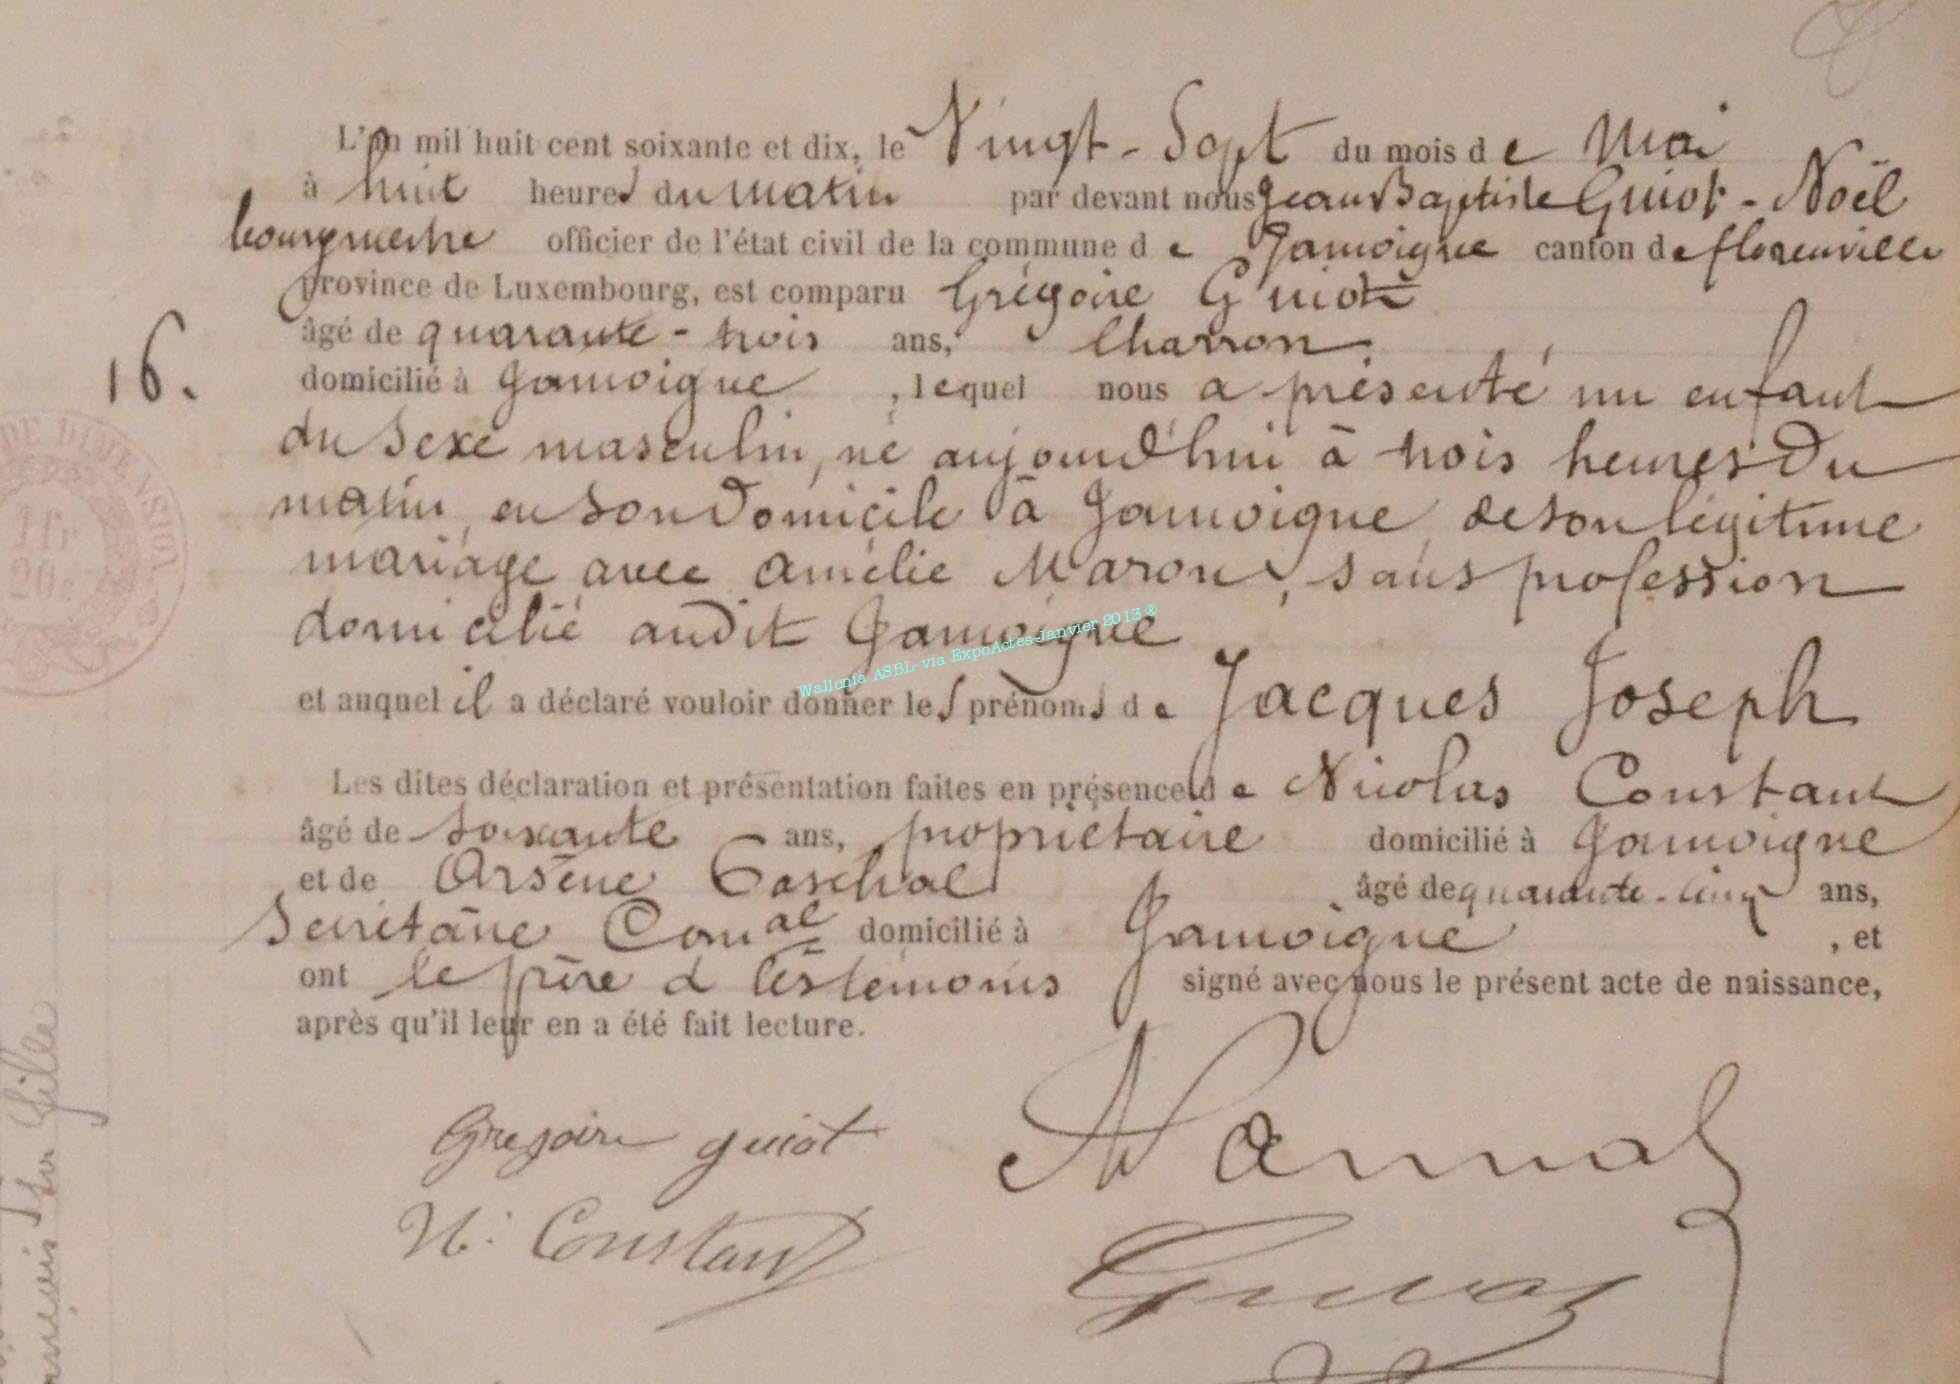 L'an mil huit cent soixante et dix, le Vingt-Sept du mois de Mai
à huit heures du matin par devant nous Jean Baptiste Guiot-Noël
bourgmestre officier de l'état civil de la commune de Jamoigne canton de florenville
province de Luxembourg, est comparu Grégoire Guiot
âgé de quarante-trois ans, Charron
16.
domicilié à Jamoigne, lequel nous a présenté un enfant
du sexe masculin, né aujourd'hui à trois heures du
matin, en son domicile à Jamoigne, de son légitime
mariage avec Amélie Maron, sans profession
domicilié audit Jamoigne
Wallonie ASBL via ExpoActes-Janvier 2013 ®
et auquel il a déclaré vouloir donner les prénoms de Jacques Joseph
Les dites déclaration et présentation faites en présence de Nicolas Constant
âgé de soixante ans, propriétaire domicilié à Jamoigne
et de Arsène Paschal âgé de quarante-cinq ans,
Secrétaire Comal domicilié à Jamoigne, et
ont le père & les témoins signé avec nous le présent acte de naissance,
après qu'il leur en a été fait lecture.
Gregoire guiot
N. Constant
Guiot
DE DIMENSION
1 fr
20